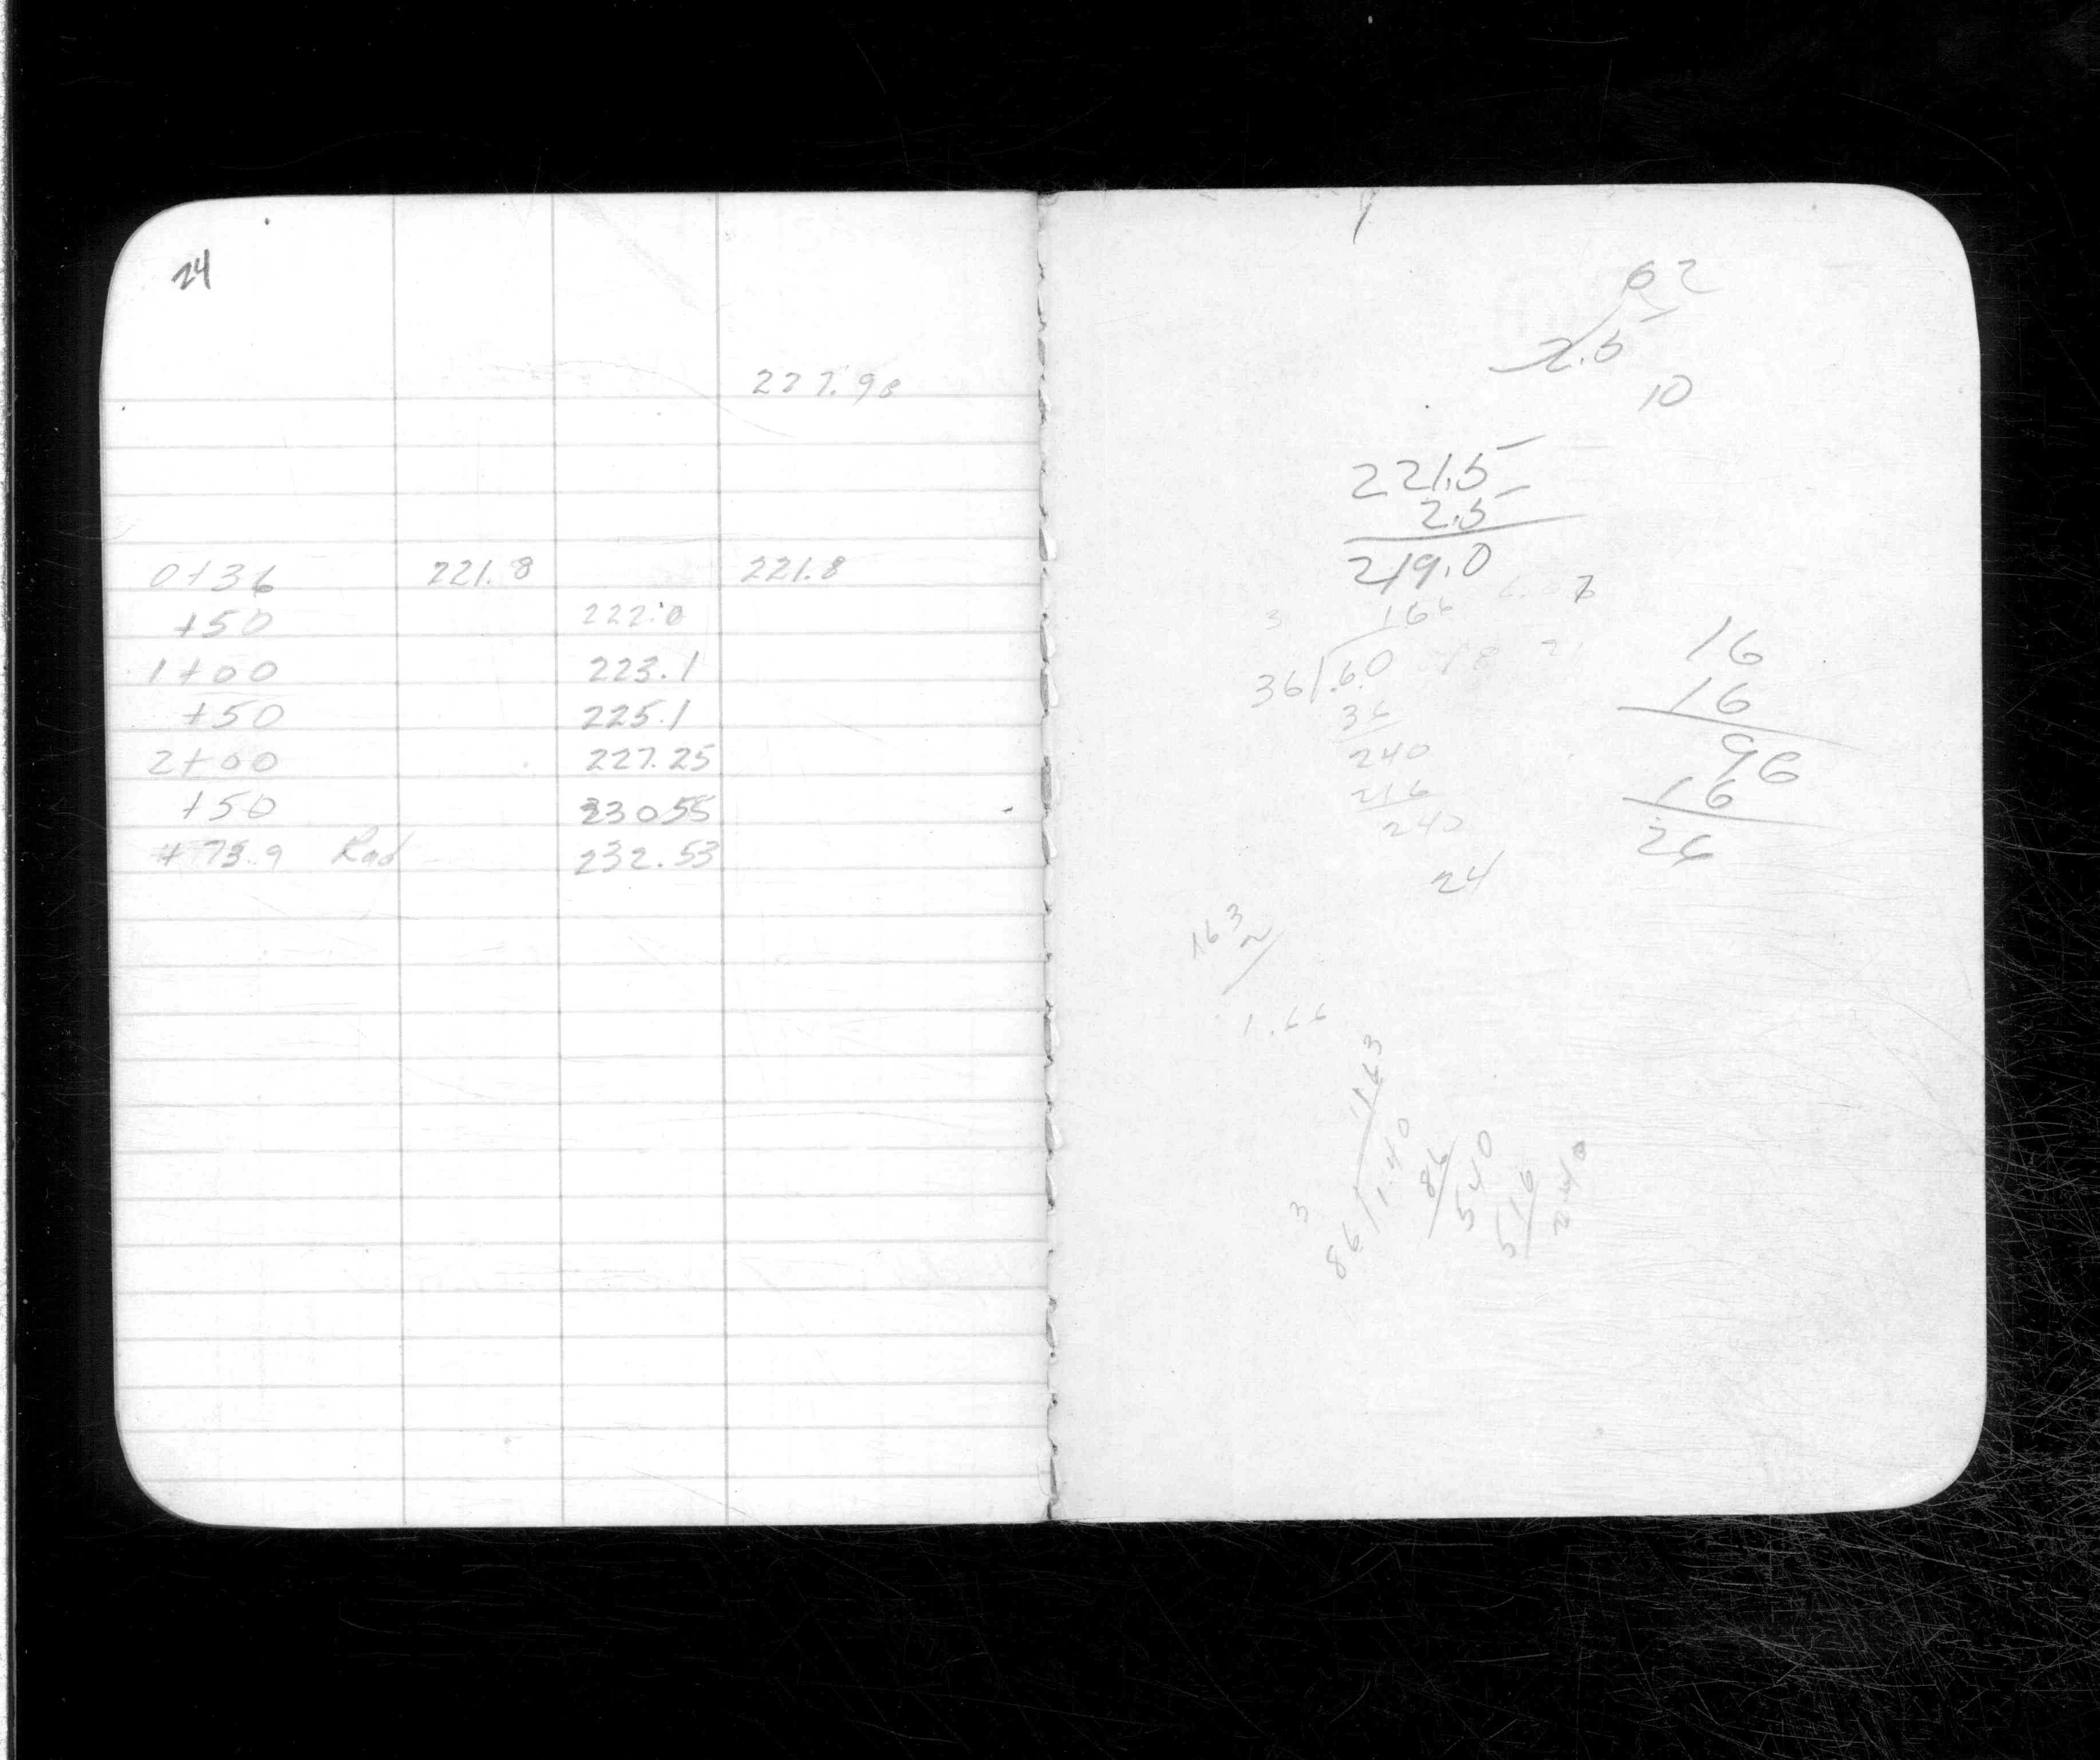 24
227.98
0+36 221.8 221.8
+50 222.0
1+00 223.1
+50 225.1
2+00 227.25
+50 23055
+73.9 Rad 232.53
62
2.5
10
221.5
2.5
219.0
3 166
36/.6.0
36
240
216
240
24
16
16
96
16
26
163
2
1.66
163
3
86/1.40
86
540
516
240